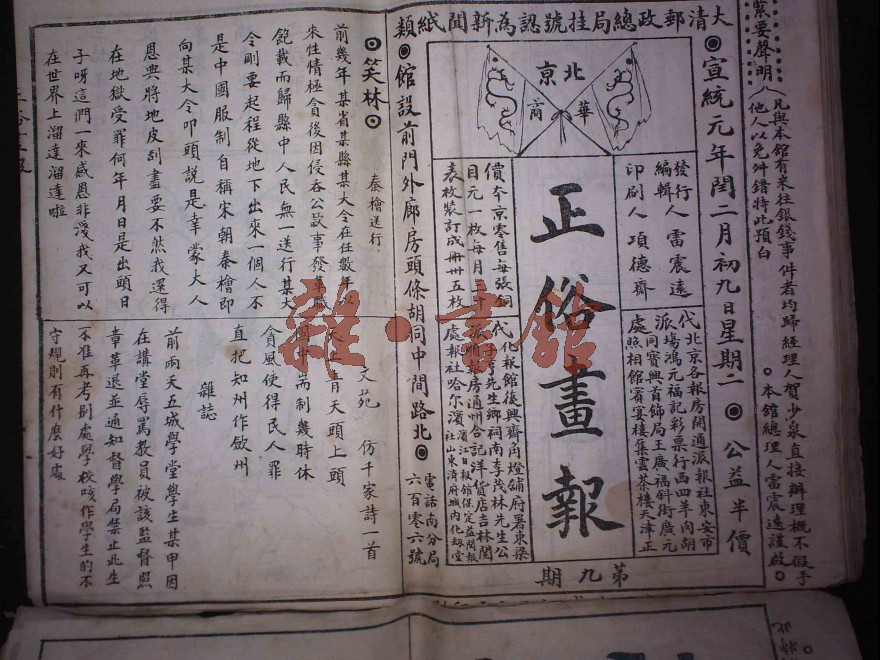 緊要聲明
凡與本館有來往銀錢事件者均歸經理人賀少泉直接辦理概不假手
他人以免舛錯特此預白
本館總理人雷震遠謹啟
大清郵政總局挂號認為新聞紙類
宣統元年閏二月初九日星期二
公益半價
北京
華商
發行人
編輯人 雷震遠
印刷人 項德齋
代北京各報房閣通派報社東安市
派場鴻元福記彩票行西四羊肉胡
同寶興首飾局王廣福斜街廣元
處照相館賓宴樓集雲茶樓天津正
正俗畫報
第九期
價本京零售每張銅
目元一枚每月三十
表枚裝訂成冊卅五枚
化報館後興齋角燈舖府署東梁
先生鄉祠南李茂林先生公
報房通州合記洋貨店吉林閣
處報社哈尔濱
濱江日報館保定益聞報
社山東濟府城內化刼堂
館設前門外廊房頭條胡同中間路北
電話南分局
六百零六號
笑林
秦檜送行
前幾年某省某縣某大令在任數年以
來性情極貪後因侵吞公欵事發革職
飽載而歸縣中人民無一送行某大
令剛要起程從地下出來一個人不
是中國服制自稱宋朝秦檜即
向某大令叩頭說是幸蒙大人
恩典將地皮刮盡要不然我還得
在地獄受罪何年月日是出頭日
子呀這們一來感恩非淺我又可以
在世界上溜達溜達啦
文苑
仿千家詩一首
青天頭上頭
而制幾時休
貪風使得民人罪
直把知州作敛州
雜誌
前兩天五城學堂學生某甲因
在講堂辱罵教員被該監督照
章革退並通知督學局禁止此生
不准再考別處學校咳作學生的不
守規則有什麼好處
雜·書館